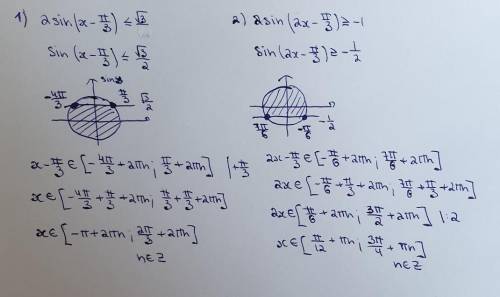 1) 2sin(x-π/3) ≤ √3
sin(x-π/3) ≤ √3/2
sin
-4π/3 π/3 √3/2
x-π/3 ∈ [-4π/3+2πn; π/3+2πn] |+π/3
x∈[-4π/3+π/3+2πn; π/3+π/3+2πn]
x∈[-π+2πn; 2π/3+2πn]
n∈Z
2) 2sin(2x-π/3) ≥ -1
sin(2x-π/3) ≥ -1/2
7π/6 -π/6 -1/2
2x-π/3 ∈ [-π/6+2πn; 7π/6+2πn]
2x∈[-π/6+π/3+2πn; 7π/6+π/3+2πn]
2x∈[π/6+2πn; 3π/2+2πn] |:2
x∈[π/12+πn; 3π/4+πn]
n∈Z